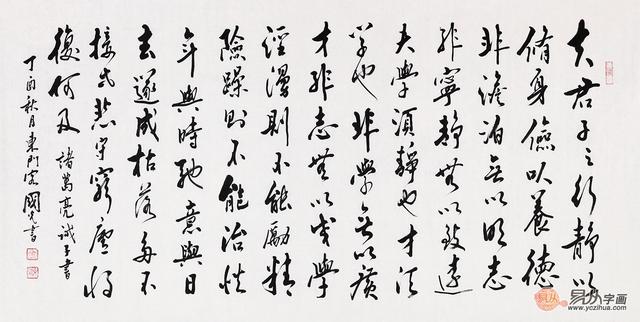 夫君子之行靜以
脩身儉以養德
非澹泊無以明志
非寧靜無以致遠
夫學須靜也才須
學也非學無以廣
才非志無以成學
淫漫則不能勵精
險躁則不能治性
年與時馳意與日
去遂成枯落多不
接世悲守窮廬將
復何及
諸葛亮誡子書
丁酉秋月東門國光書
易从字画
www.yczihua.com